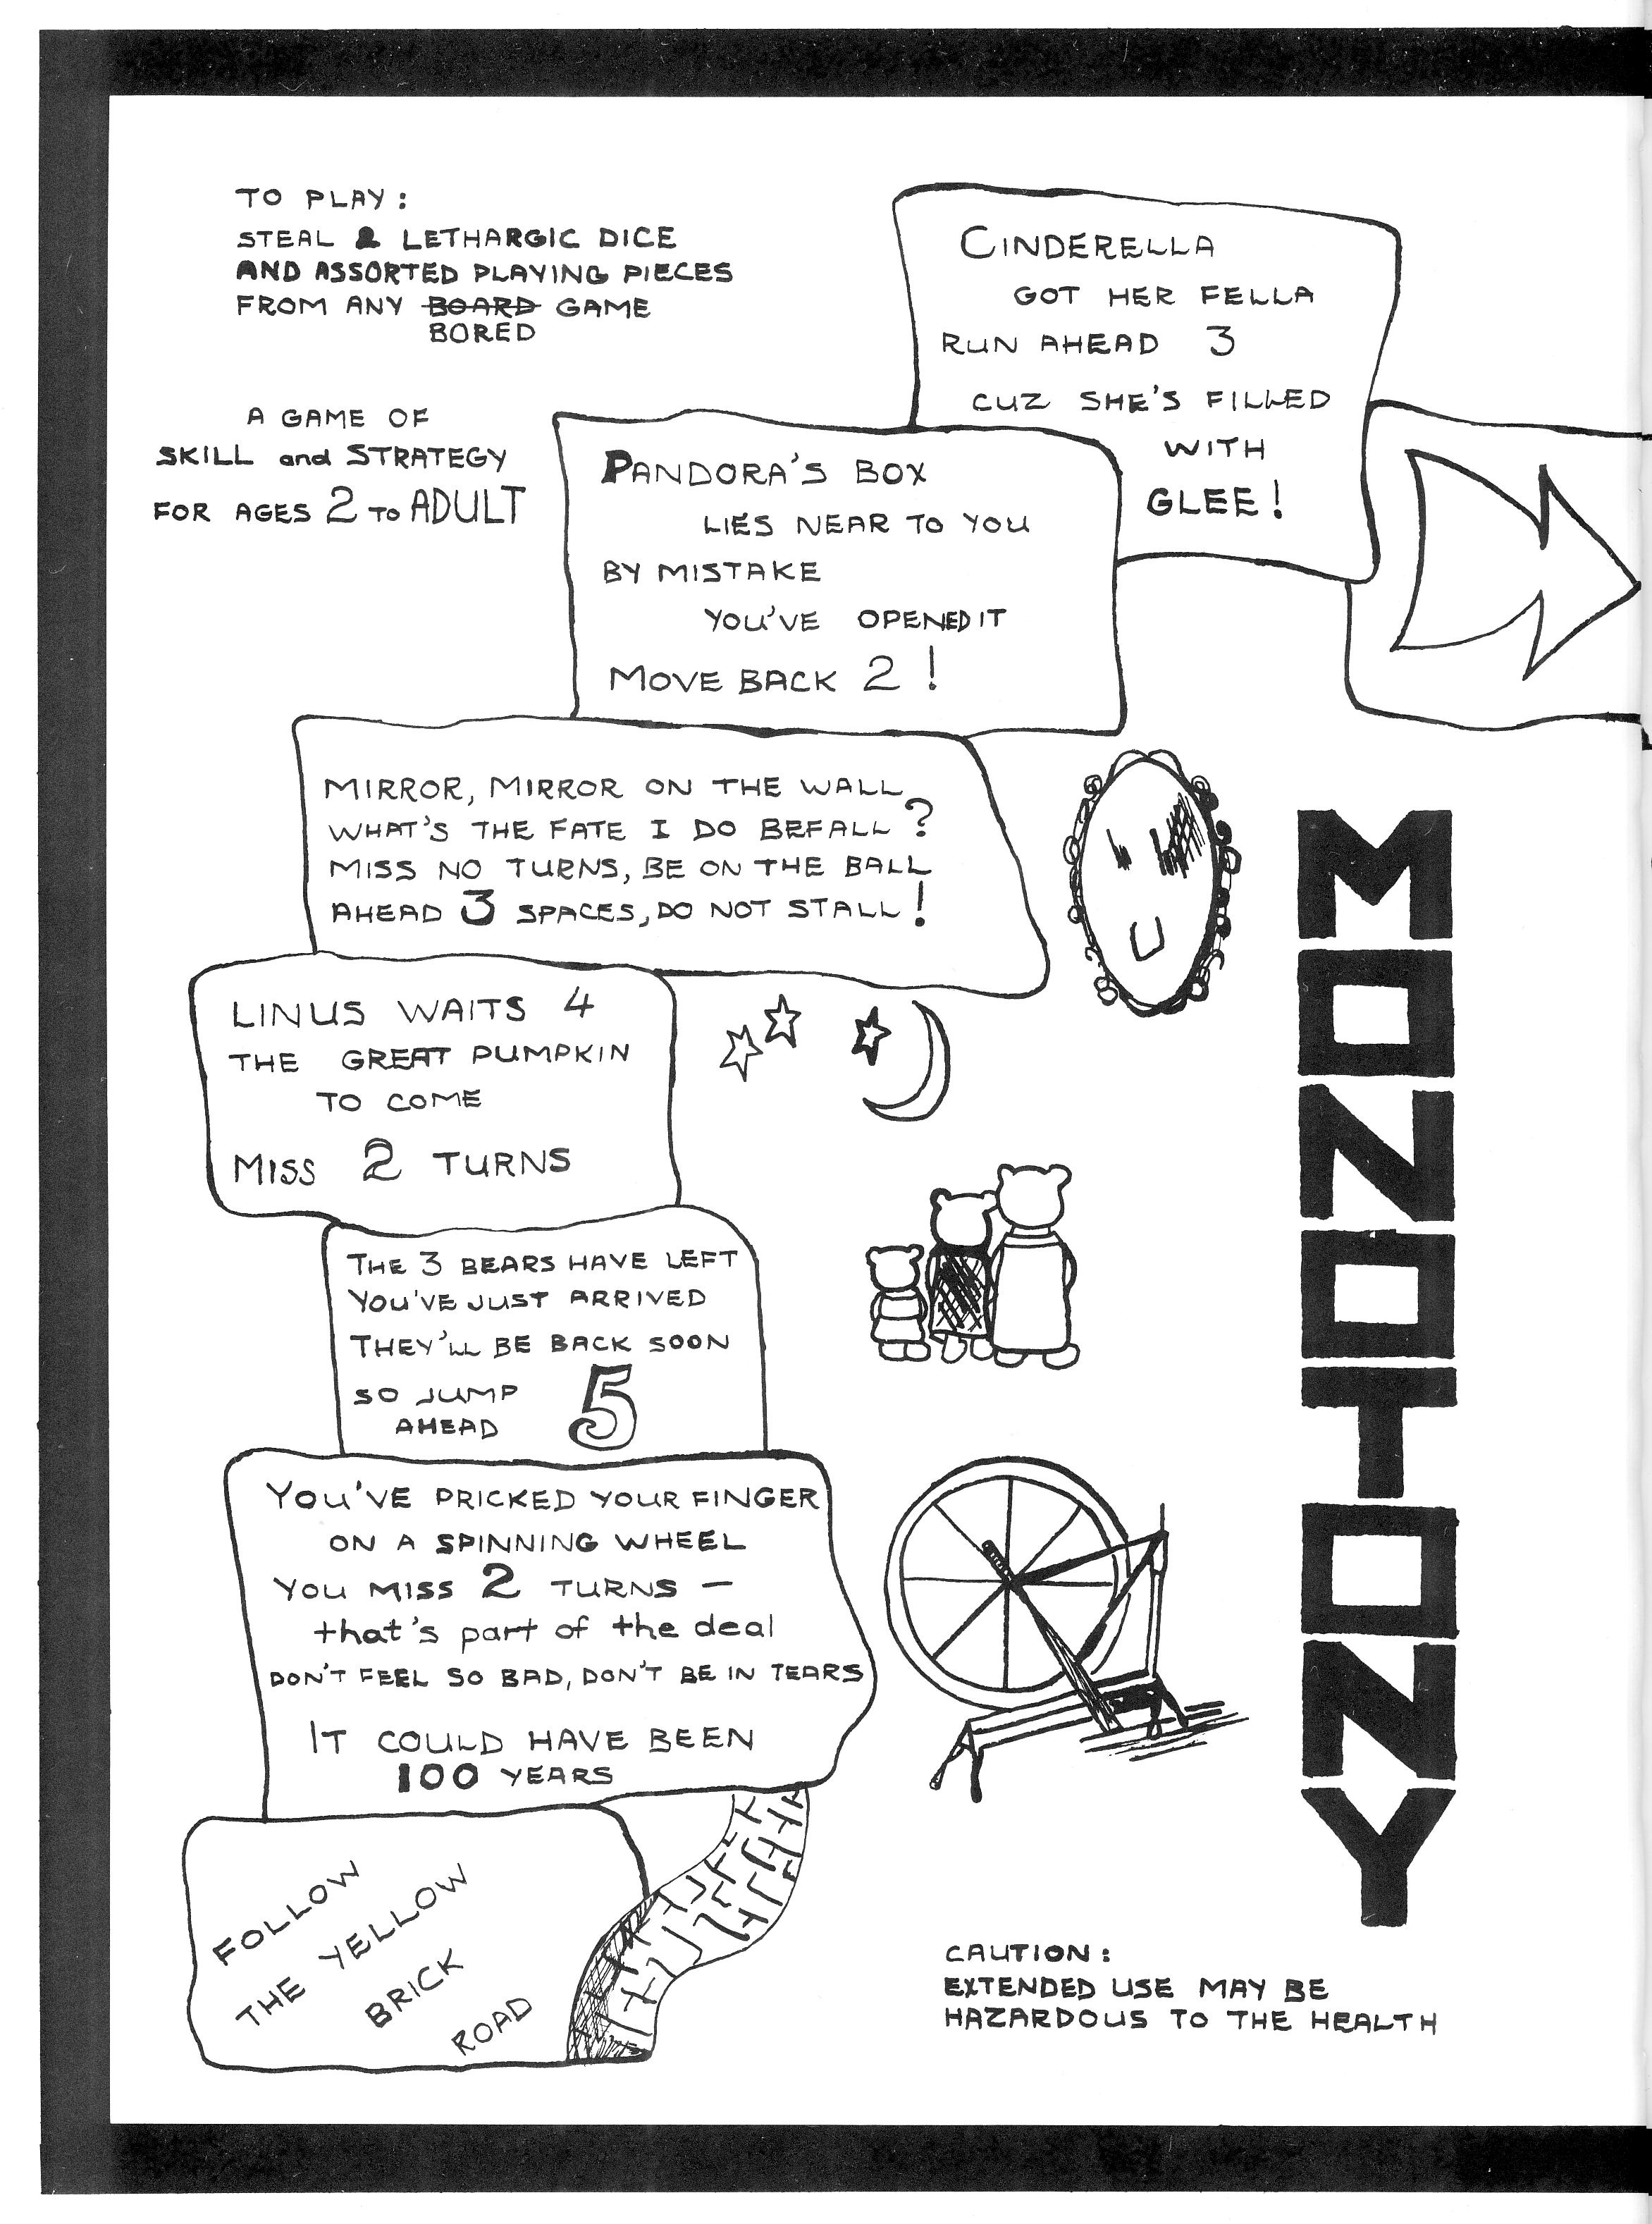 TO PLAY:
STEAL 2 LETHARGIC DICE
AND ASSORTED PLAYING PIECES
FROM ANY BOARD GAME
BORED
A GAME OF
SKILL and STRATEGY
FOR AGES 2 TO ADULT
CINDERELLA
GOT HER FELLA
RUN AHEAD 3
CUZ SHE'S FILLED
WITH
GLEE!
PANDORA'S BOX
LIES NEAR TO YOU
BY MISTAKE
YOU'VE OPENED IT
MOVE BACK 2!
MIRROR, MIRROR ON THE WALL
WHAT'S THE FATE I DO BEFALL?
MISS NO TURNS, BE ON THE BALL
AHEAD 3 SPACES, DO NOT STALL!
LINUS WAITS 4
THE GREAT PUMPKIN
TO COME
MISS 2 TURNS
THE 3 BEARS HAVE LEFT
YOU'VE JUST ARRIVED
THEY'LL BE BACK SOON
SO JUMP
AHEAD 5
YOU'VE PRICKED YOUR FINGER
ON A SPINNING WHEEL
YOU MISS 2 TURNS —
that's part of the deal
DON'T FEEL SO BAD, DON'T BE IN TEARS
IT COULD HAVE BEEN
100 YEARS
FOLLOW
THE YELLOW
BRICK
ROAD
MONOTONY
CAUTION:
EXTENDED USE MAY BE
HAZARDOUS TO THE HEALTH